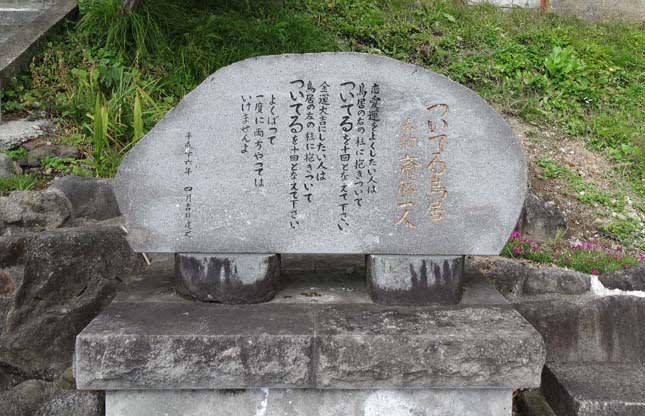 ついてる鳥居
大和 斎藤一人
恋愛運をよくしたい人は
鳥居の右の柱に抱きついて
ついてるを十回となえて下さい
金運大吉にしたい人は
鳥居の左の柱に抱きついて
ついてるを十回となえて下さい
よくばって
一度に両方やっては
いけませんよ
平成十六年 四月吉日建之